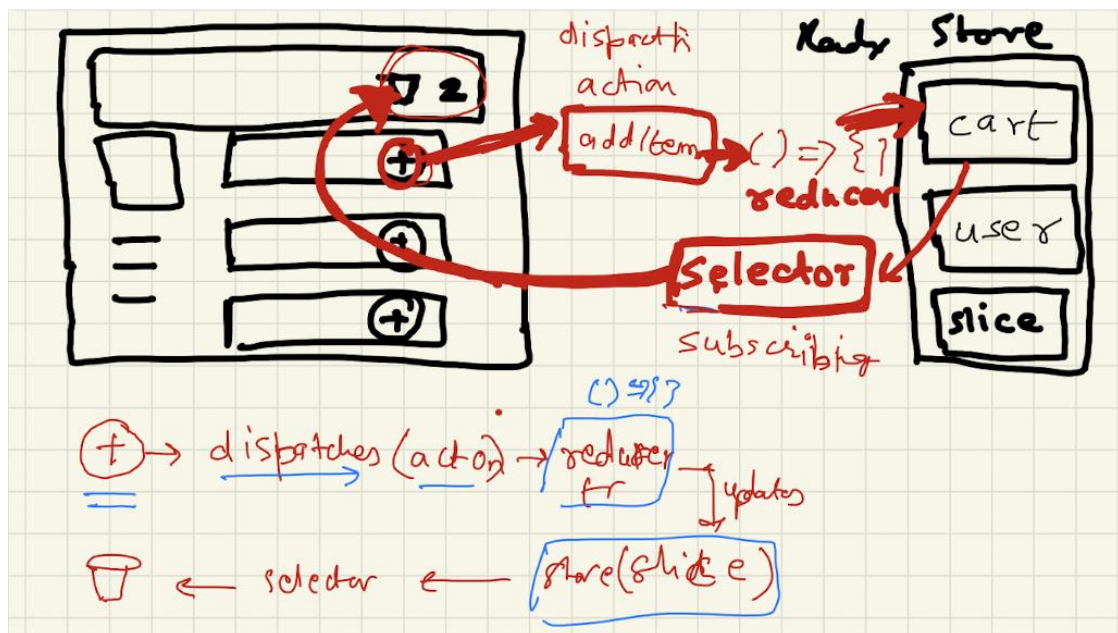 dispatch
action
Redux Store
2
addItem
() => {}
reducer
cart
user
slice
selector
subscribing
+
+
+
() => {}
+ → dispatches (action) → reducer
fr
updates
← selector ← store(slice)